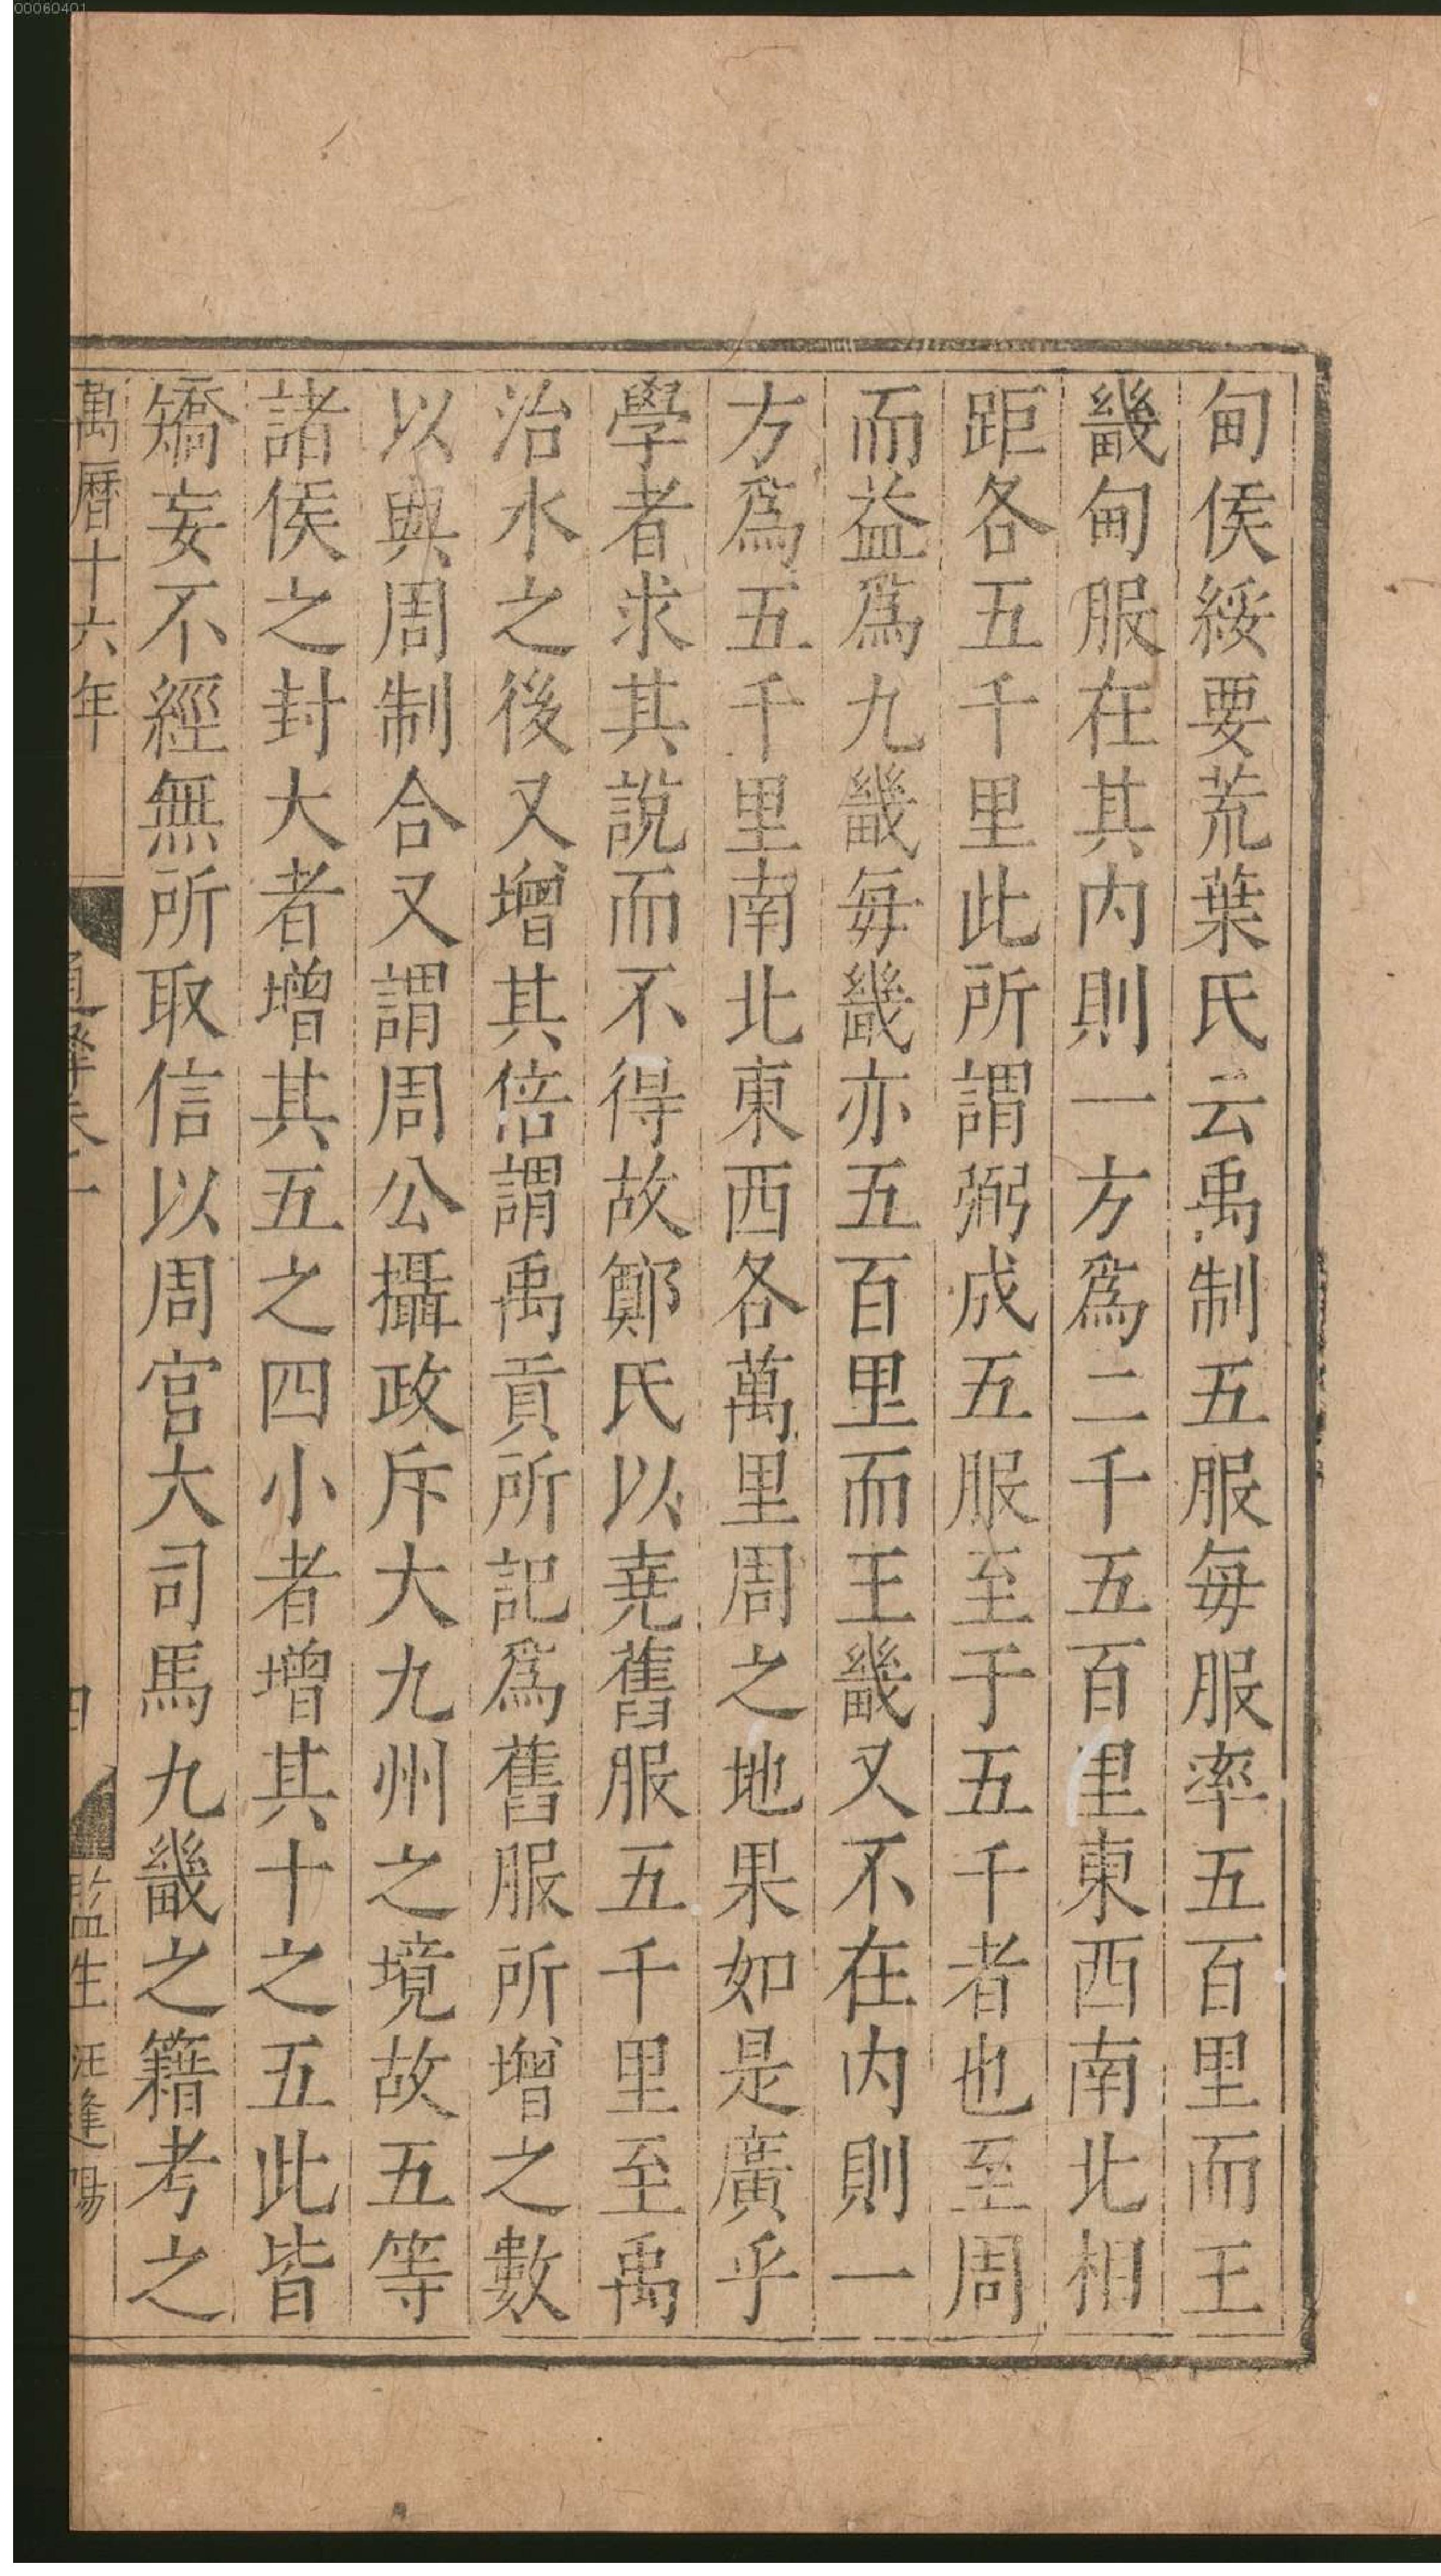 甸侯綏要荒葉氏云禹制五服毎服率五百里而王
畿甸服在其内則一方爲二千五百里東西南北相
距各五千里此所謂弼成五服至于五千者也至周
而益爲九畿毎畿亦五百里而王畿又不在内則一
方爲五千里南北東西各萬里周之地果如是廣乎
學者求其說而不得故鄭氏以堯舊服五千里至禹
治水之後又增其倍謂禹貢所記爲舊服所增之數
以與周制合又謂周公攝政斥大九州之境故五等
諸侯之封大者增其五之四小者增其十之五此皆
矯妄不經無所取信以周官大司馬九畿之籍考之
萬曆十六年
監生汪逢陽
00060401